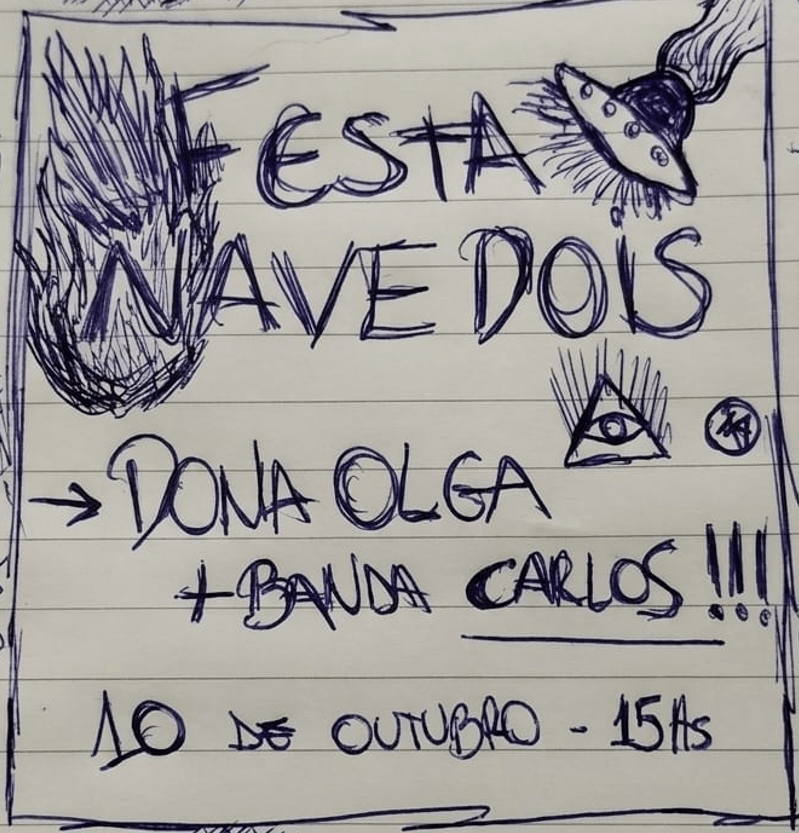 FESTA
NAVE DOIS
→ DONA OLGA
+ BANDA CARLOS!!!
10 DE OUTUBRO - 15Hs